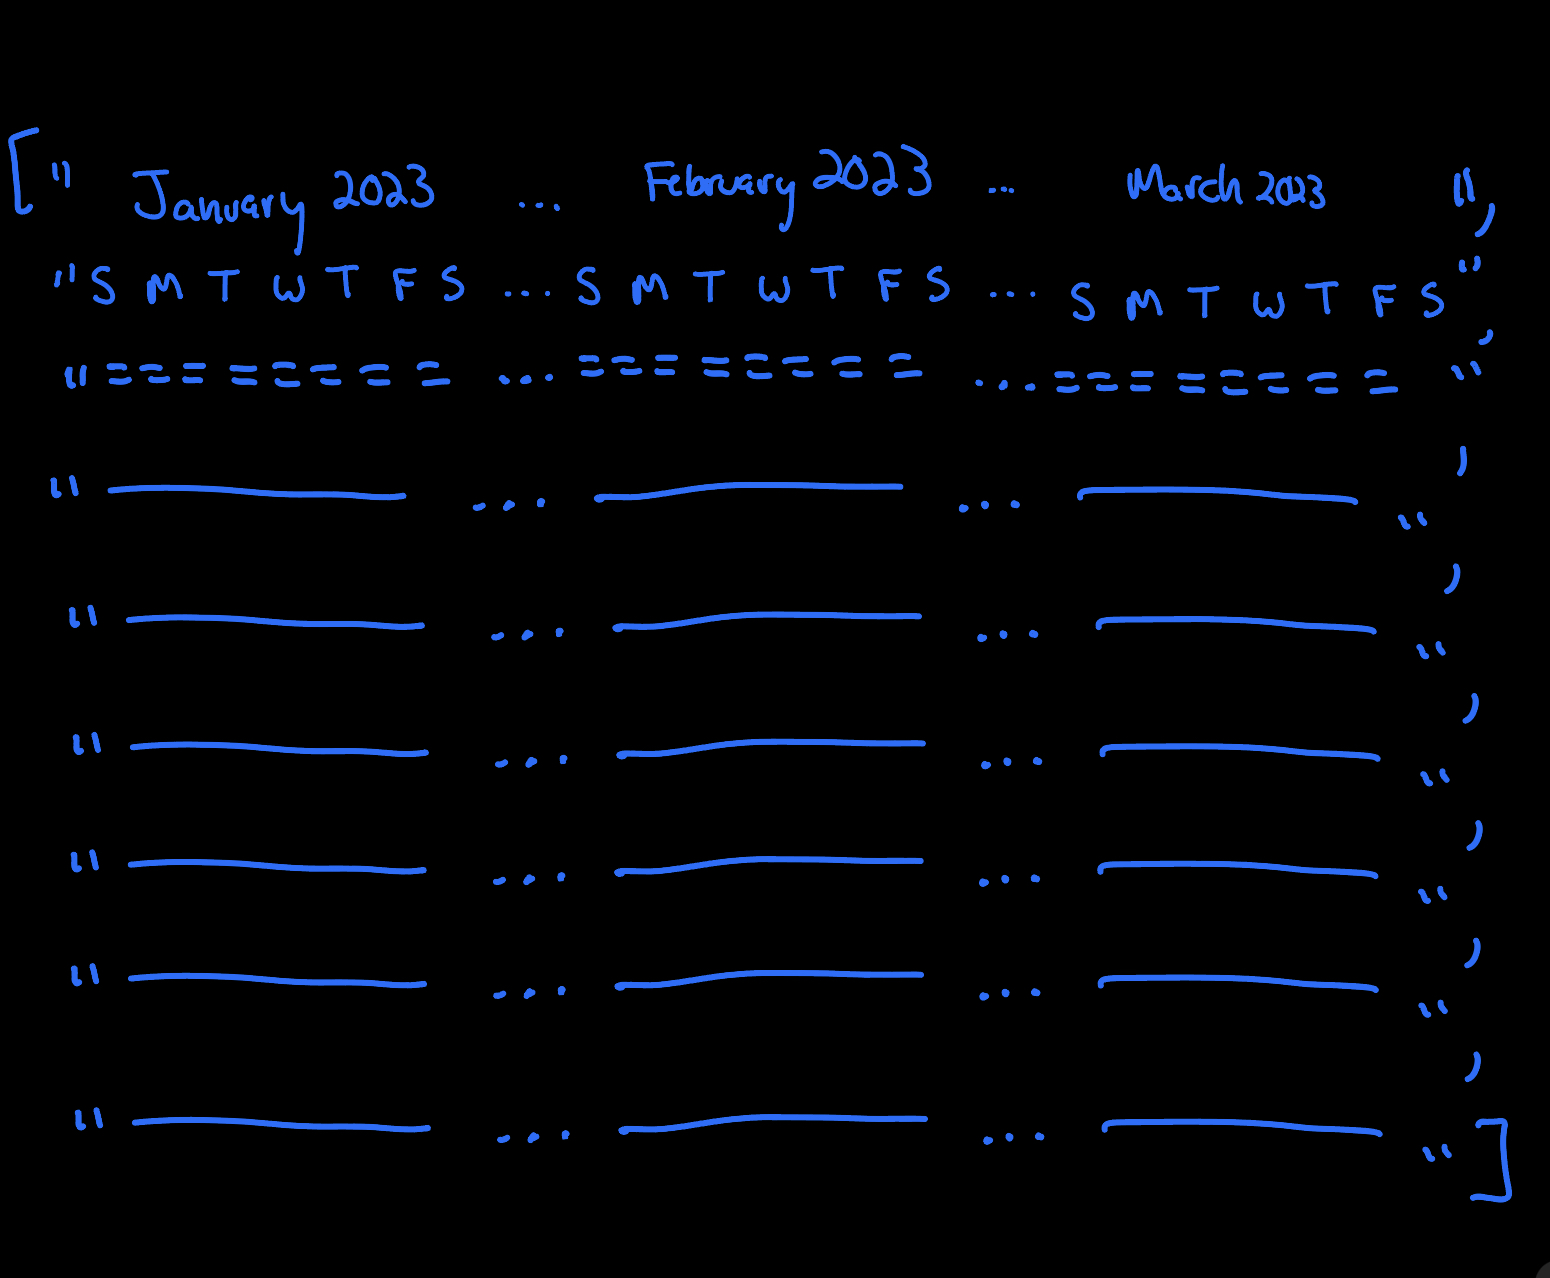 [" January 2023 ... February 2023 ... March 2023 ",
"S M T W T F S ... S M T W T F S ... S M T W T F S",
"= = = = = = = ... = = = = = = = ... = = = = = = =",
"———— ... ———— ... ————",
"———— ... ———— ... ————",
"———— ... ———— ... ————",
"———— ... ———— ... ————",
"———— ... ———— ... ————",
"———— ... ———— ... ————"]